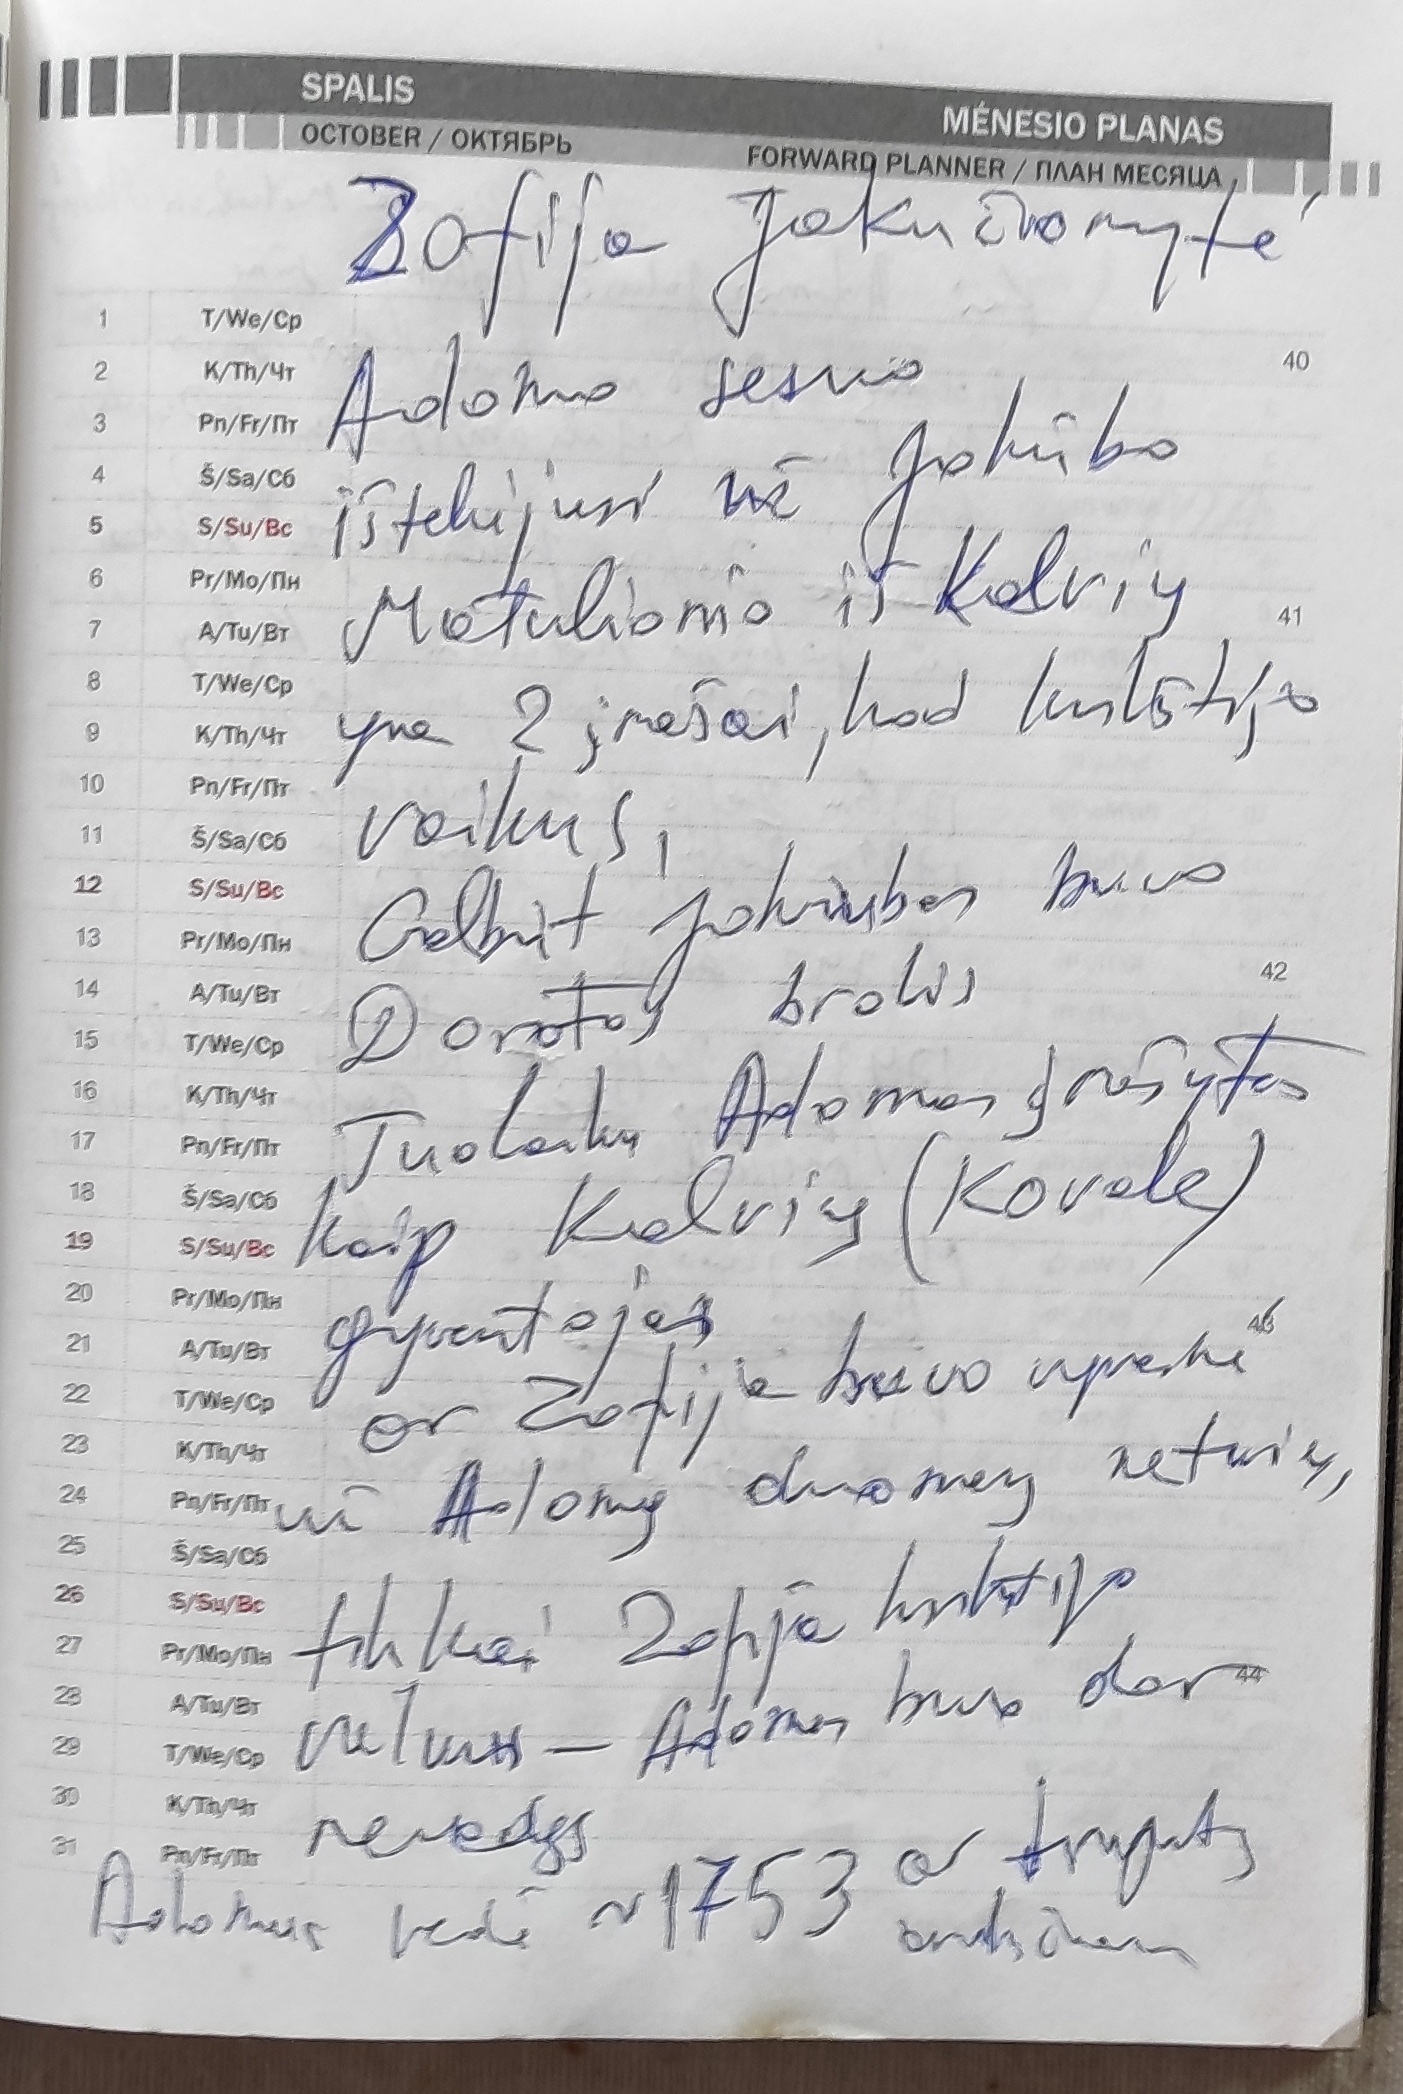 SPALIS
MĖNESIO PLANAS
OCTOBER / ОКТЯБРЬ
FORWARD PLANNER / ПЛАН МЕСЯЦА
Zofija Jakučionytė
1 T/We/Ср
2 K/Th/Чт 40
Adomo sesuo
3 Pn/Fr/Пт
4 Š/Sa/Сб
ištekėjusi už Jokūbo
5 S/Su/Вс
6 Pr/Mo/Пн
Matulionio iš Kalvių
7 A/Tu/Вт 41
8 T/We/Ср
yra 2 įrašai, kad krikštijo
9 K/Th/Чт
10 Pn/Fr/Пт
vaikus,
11 Š/Sa/Сб
12 S/Su/Вс
Galbūt Jokūbas buvo
13 Pr/Mo/Пн
14 A/Tu/Вт 42
Dorotos brolis
15 T/We/Ср
16 K/Th/Чт
Tuolaiku Adomas įrašytas
17 Pn/Fr/Пт
18 Š/Sa/Сб
kaip Kalvių (Kovale)
19 S/Su/Вс
20 Pr/Mo/Пн
gyventojas
21 A/Tu/Вт 43
22 T/We/Ср
ar Zofija buvo vyresnė
23 K/Th/Чт
24 Pn/Fr/Пт
už Adomą duomenų neturių,
25 Š/Sa/Сб
26 S/Su/Вс
tik kai Zofija krikštijo
27 Pr/Mo/Пн
28 A/Tu/Вт 44
vaikus — Adomas buvo dar
29 T/We/Ср
30 K/Th/Чт
nevedęs
31 Pn/Fr/Пт
Adomas vedė ~1753 ar truputį
anksčiau